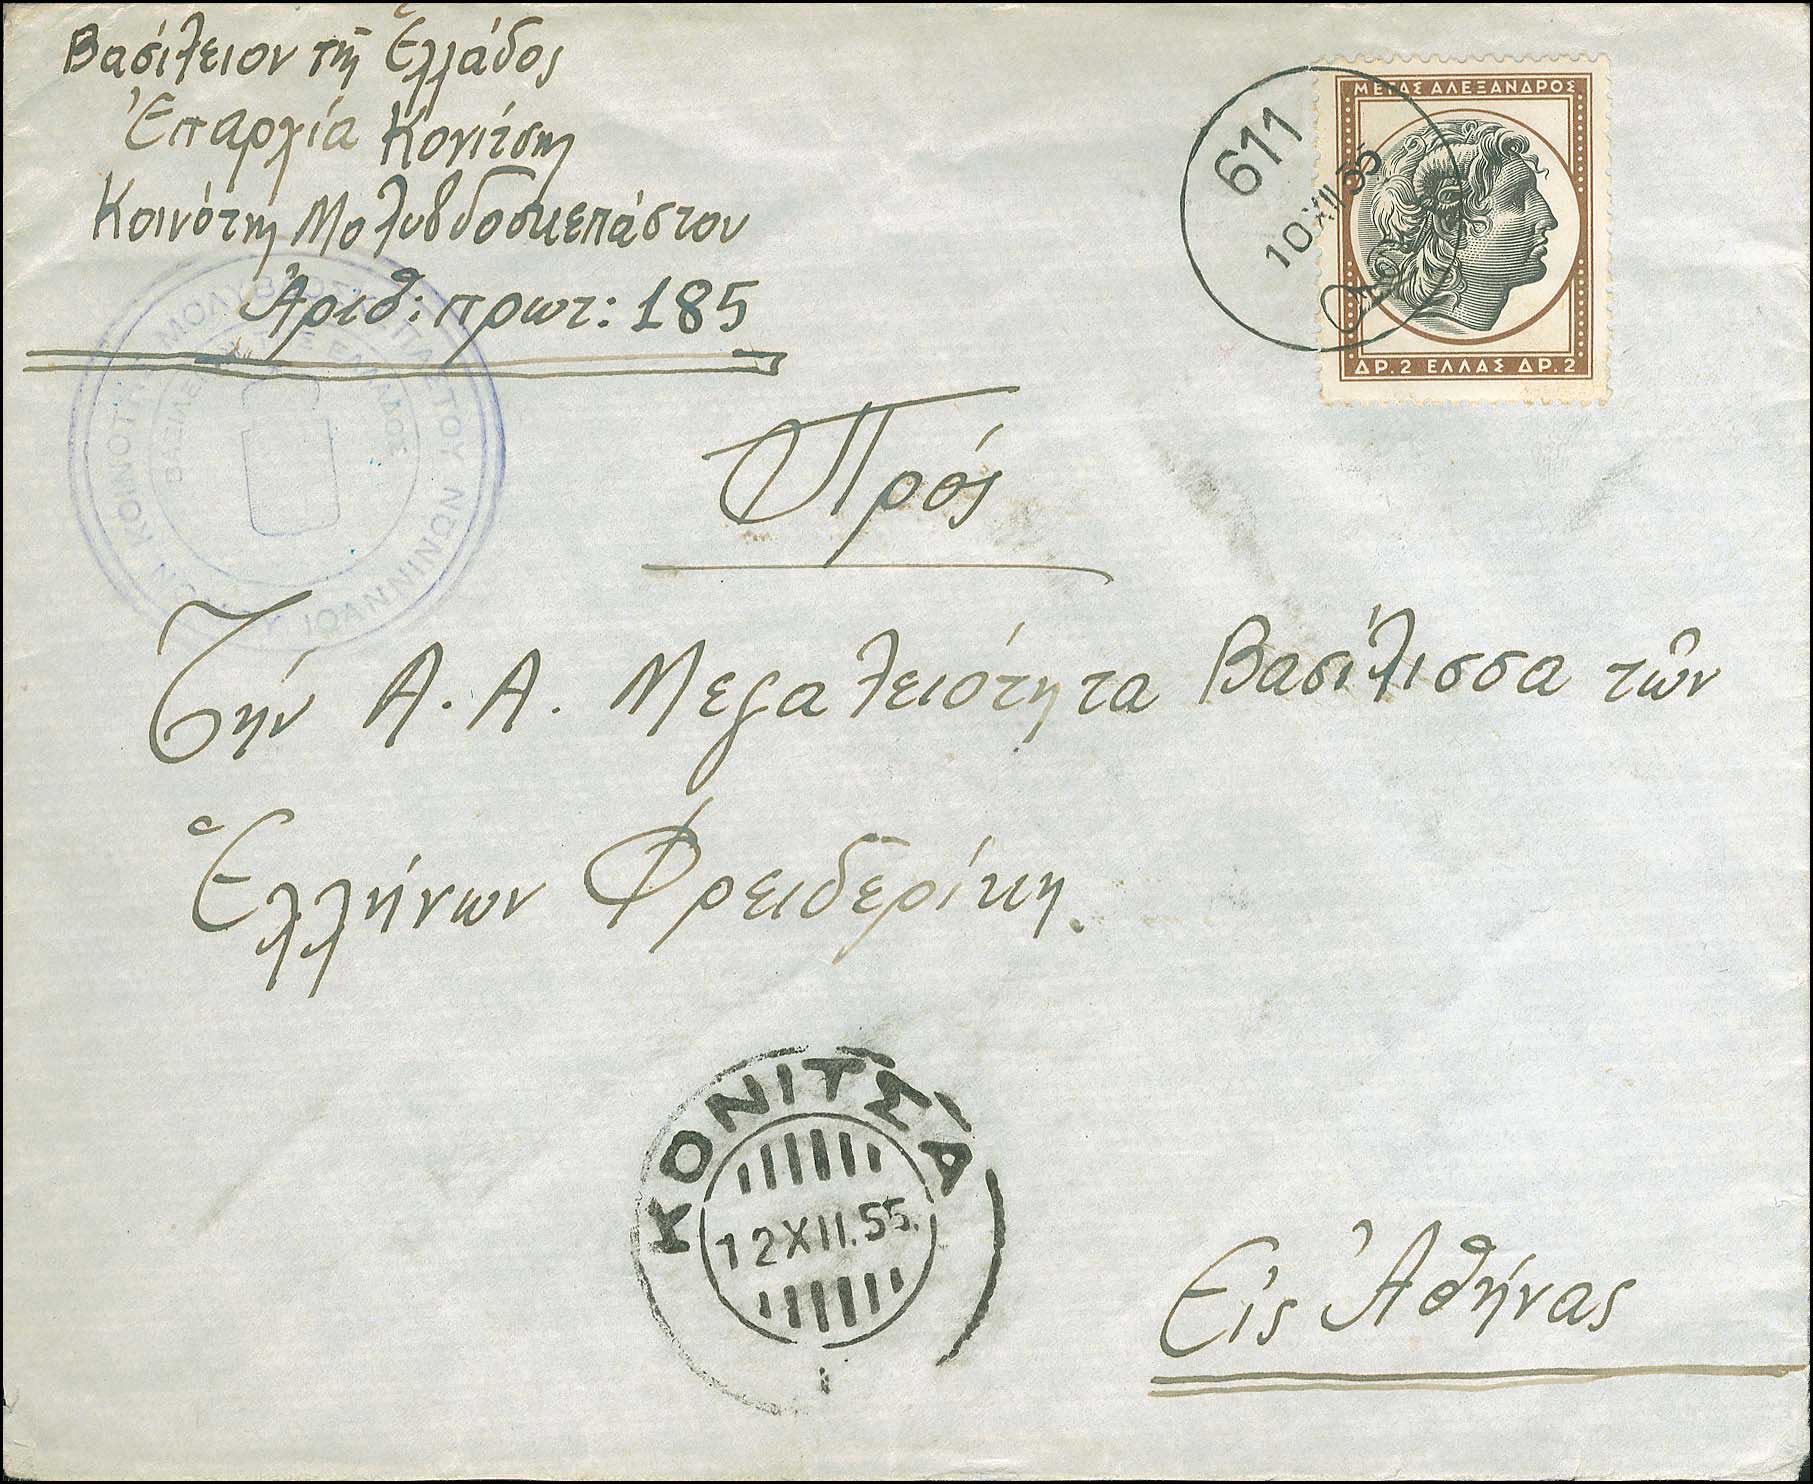 Βασίλειον τῆς Ἑλλάδος
Ἐπαρχία Κονίτσης
Κοινότης Μολυβδοσκεπάστου
Ἀριθ: πρωτ: 185
ΜΕΓΑΣ ΑΛΕΞΑΝΔΡΟΣ
ΔΡ. 2 ΕΛΛΑΣ ΔΡ. 2
611
10 XII 55
ΚΟΙΝΟΤΗΣ ΜΟΛΥΒΔΟΣΚΕΠΑΣΤΟΥ ΙΩΑΝΝΙΝΩΝ
ΒΑΣΙΛΕΙΟΝ ΤΗΣ ΕΛΛΑΔΟΣ
Πρός
Τήν Α. Α. Μεγαλειότητα Βασίλισσα τῶν
Ἑλλήνων Φρειδερίκη.
ΚΟΝΙΤΣΑ
12 XII. 55.
Εἰς Ἀθήνας